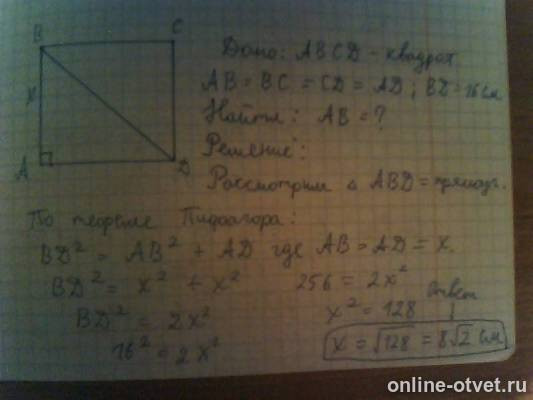 B C
Дано: ABCD - квадрат
AB = BC = CD = AD; BD = 16 см
x
Найти: AB = ?
Решение:
A D
Рассмотрим △ ABD = прямоуг.
По теореме Пифагора:
BD² = AB² + AD где AB = AD = x.
BD² = x² + x² 256 = 2x²
BD² = 2x² x² = 128 Ответ
16² = 2x² x = √128 = 8√2 см
online-otvet.ru